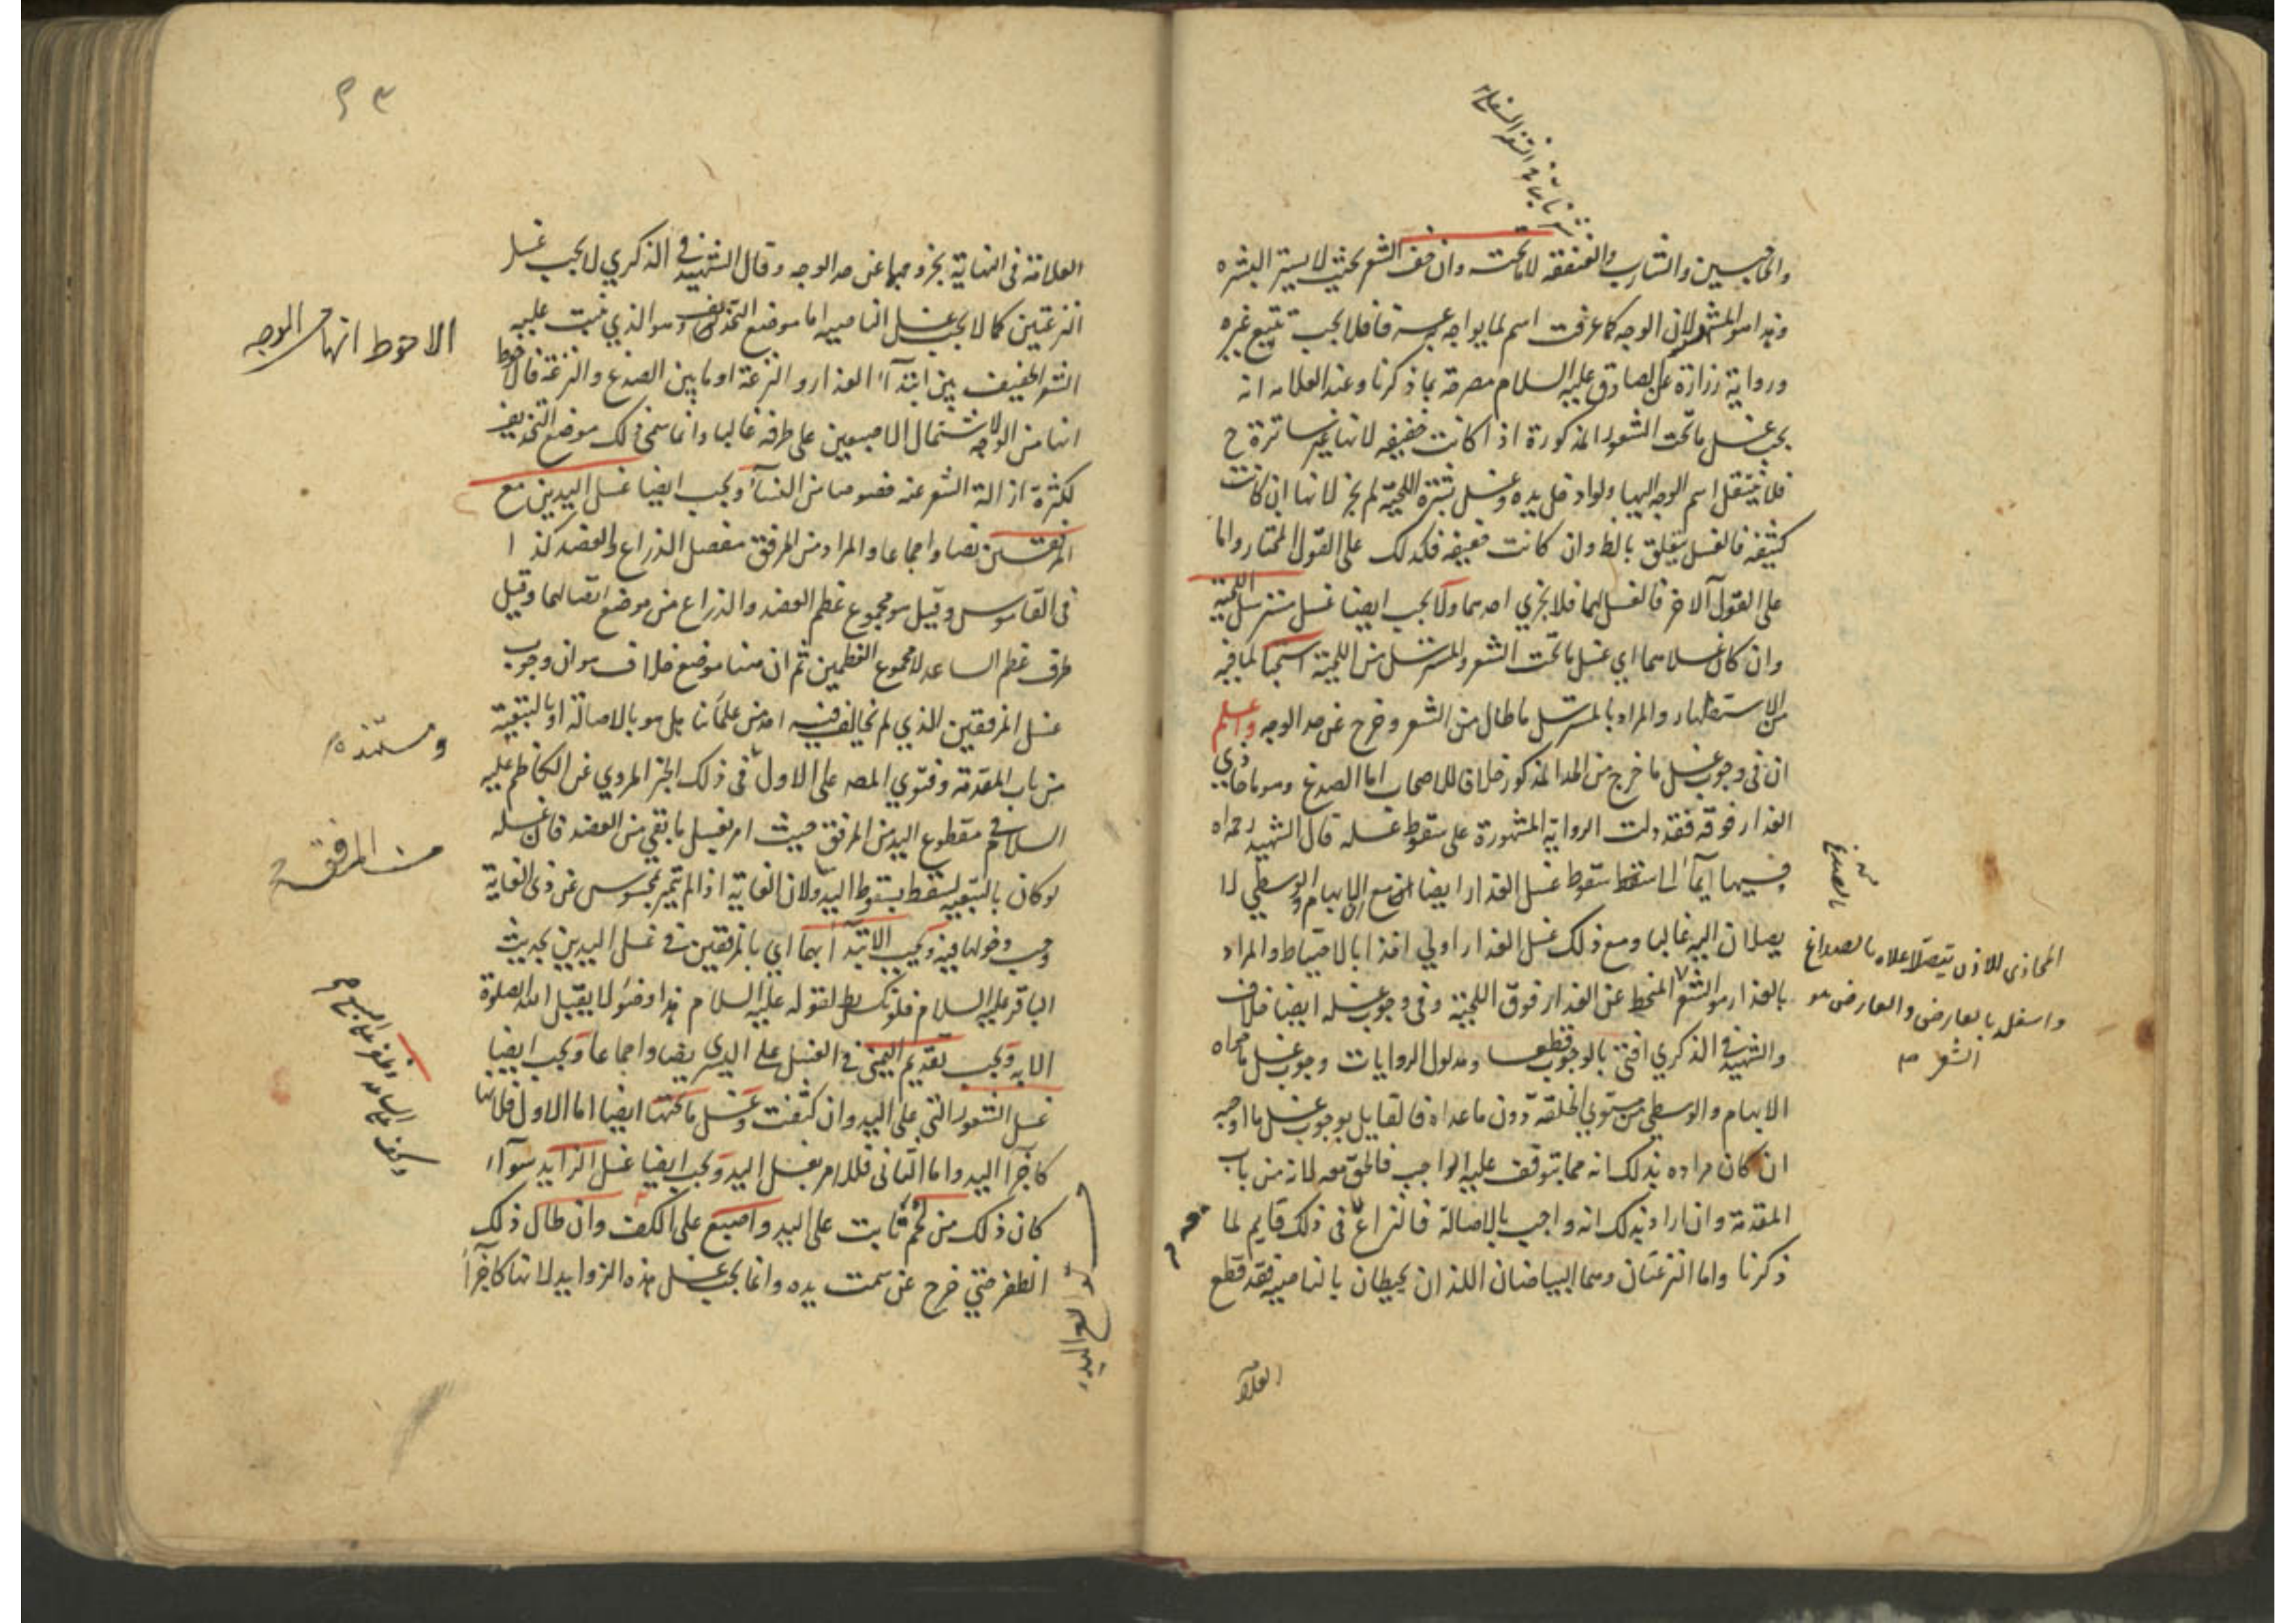 والحاجبين والشارب والعنفقة لا ما تحته وان خف الشعر بحيث لا يستر البشره
وهذا هو المشهور لان الوجه كما عرفت اسم لما يواجه به فلا يجب تتبع غيره
ورواية زرارة عن الصادق عليه السلام مصرحة بما ذكرنا وعند العلامه انه
يجب غسل ما تحت الشعور المذكورة اذا كانت خفيفه لانها غير ساترة ح
فلا ينتقل اسم الوجه اليها ولو ادخل يده وغسل بشرة اللحية لم يجز لانها ان كانت
كثيفه فالغسل يتعلق بالظ وان كانت خفيفه فكذلك على القول المختار واما
على القول الآخر فالغسل لهما فلا يجزي احدهما ولا يجب ايضا غسل مسترسل اللحية
وان كان غسلاهما اي غسل ما تحت الشعر والمسترسل من اللحية استحبا لما فيه
من الاستظهار والمراد بالمسترسل ما طال من الشعر وخرج عن حد الوجه واعلم
ان في وجوب غسل ما خرج من الحد المذكور خلافا للاصحاب اما الصدغ وهو ما حاذي
العذار فوقه فقد دلت الرواية المشهورة على سقوط غسله قال الشهيد رحمه الله
وفيها ايماء الى سقوط غسل العذار ايضا مع ان الابهام والوسطي لا
يصلان اليه غالبا ومع ذلك غسل العذار اولي اخذا بالاحتياط والمراد
بالعذار هو الشعر المنحط عن العذار فوق اللحية وفي وجوب غسله ايضا خلاف
والشهيد في الذكري افتى بالوجوب قطعا ومدلول الروايات وجوب غسل ما حواه
الابهام والوسطي من مستوي الخلقة دون ما عداه فالقايل بوجوب غسل ما اوجبه
ان كان مراده بذلك انه مما يتوقف عليه الواجب فالحق معه لانه من باب
المقدمة وان اراد بذلك انه واجب بالاصالة فالنزاع في ذلك قايم لما
ذكرنا واما النزعتان وهما البياضان اللذان يحيطان بالناصيه فقد قطع
المحاذي للاذن يتصل اعلاه بالصداغ
واسفله بالعارض والعارض هو
الشعر
العلامة
العلامة في النهاية بخروجهما عن حد الوجه وقال الشهيد في الذكري لا يجب غسل
النزعتين كما لا يجب غسل الناصيه اما موضع التحذيف وهو الذي نبت عليه
الشعر الخفيف بين ابتداء العذار والنزعة او ما بين الصدغ والنزعة فالاحوط
انها من الوجه لاشتمال الاصبعين على طرفه غالبا وانما سمي ذلك موضع التحذيف
لكثرة ازالة الشعر عنه خصوصا من النساء ويجب ايضا غسل اليدين مع
المرفقين نصا واجماعا والمراد من المرفق مفصل الذراع والعضد كذا
في القاموس وقيل هو مجموع عظم العضد والذراع من موضع اتصالهما وقيل
طرف عظم الساعد لا مجموع العظمين ثم ان هنا موضع خلاف هو ان وجوب
غسل المرفقين الذي لم يخالف فيه احد من علمائنا هل هو بالاصالة او بالتبعية
من باب المقدمة وفتوي المصه على الاول في ذلك الخبر المروي عن الكاظم عليه
السلام في مقطوع اليد من المرفق حيث امر بغسل ما بقي من العضد فان غسله
لو كان بالتبعيه لسقط بسقوط اليد ولان الغاية اذا لم تتميز بمحسوس عن ذي الغاية
وجب دخولها فيه ويجب الابتداء بهما اي بالمرفقين في غسل اليدين بحديث
الباقر عليه السلام فلو نكس بطل لقوله عليه السلام هذا وضوء لا يقبل الله الصلوة
الا به ويجب تقديم اليمنى في الغسل على اليسري نصا واجماعا ويجب ايضا
غسل الشعور التي على اليد وان كثفت وغسل ما تحتها ايضا اما الاول فلانها
كاجزاء اليد واما الثاني فللامر بغسل اليد ويجب ايضا غسل الزايد سواء
كان ذلك من لحم نابت على اليد واصبع على الكف وان طال ذلك
الظفر حتي خرج عن سمت يده وانما يجب غسل هذه الزوايد لانها كاجزاء
الاحوط انها من الوجه
ومستنده
من المرفق
توابع اليد